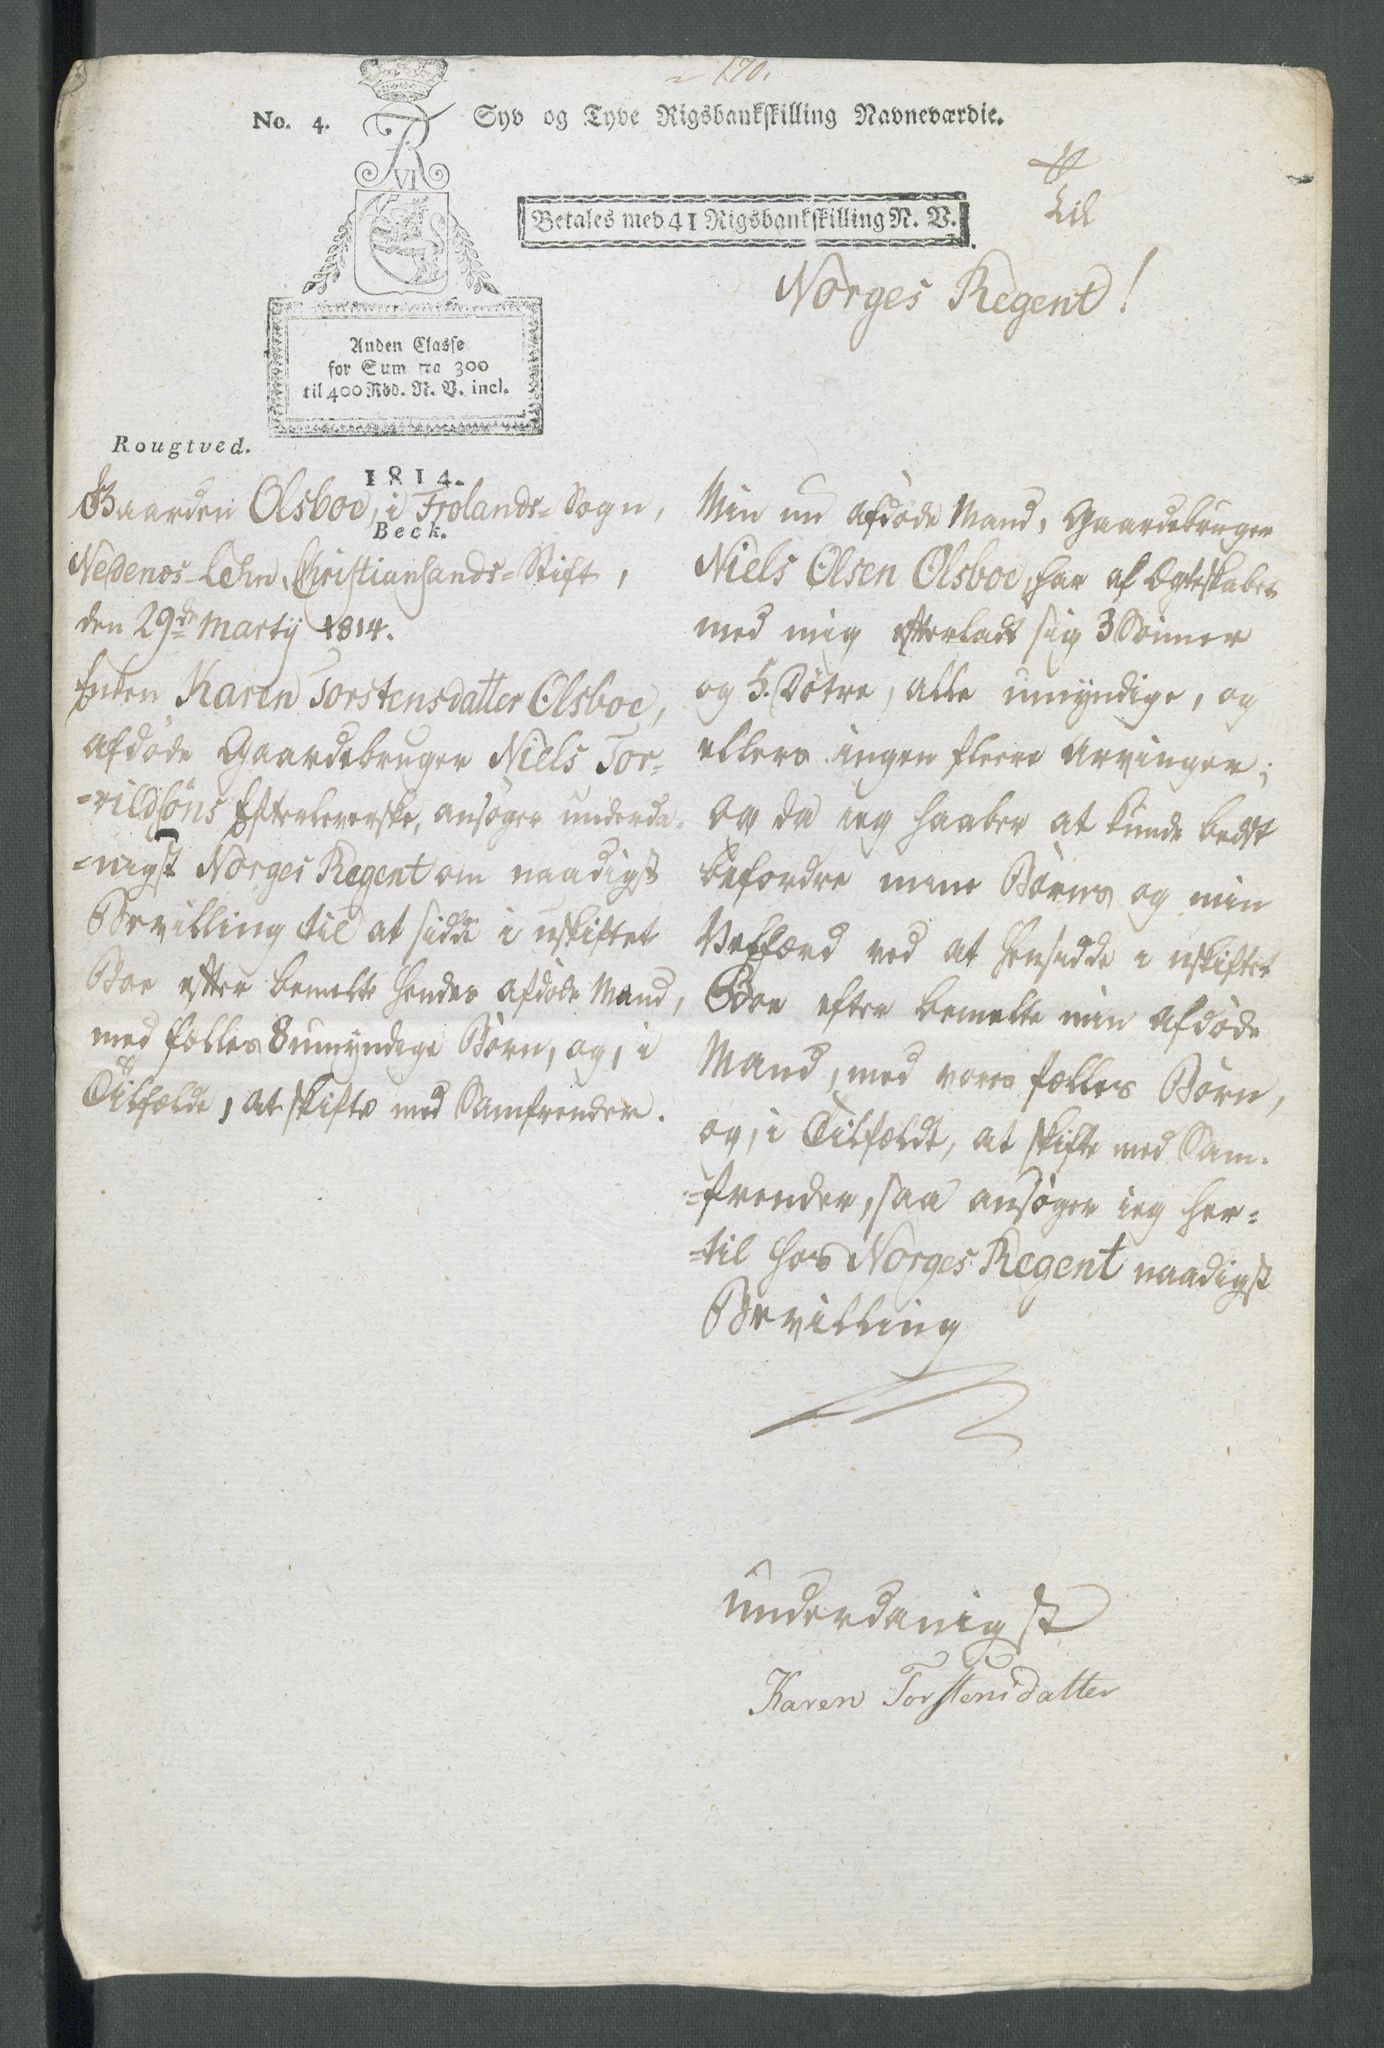 170.
No. 4. Syv og Tyve Rigsbankskilling Navneværdie.
VI
Betales med 41 Rigsbankskilling N. V.
Til
Norges Regent!
Anden Classe
for Sum fra 300
til 400 Rbd. N. V. incl.
Rougtved.
1814.
Beck.
Gaarden Olsboe, i Frolands-Sogn,
Nedenes-Lehn, Christiansands-Stift,
den 29de Martij 1814.
Enken Karen Torstensdatter Olsboe,
afdøde Gaardebruger Niels Tor-
-rildsøns Efterleverske, ansøger underda-
-nigst Norges Regent om naadigst
Bevilling til at sidde i uskiftet
Boe efter bemelte hendes afdøde Mand,
med fælles 8 umyndige Børn, og, i
Tilfælde, at skifte med Samfrender.
Min nu afdøde Mand, Gaardebruger
Niels Olsen Olsboe, har af Ægteskabet
med mig efterladt sig 3 Sønner
og 5. Døtre, alle umyndige, og
ellers ingen fleere Arvinger;
Og da ieg haaber at kunde bedst
befordre mine Børns og min
Velfærd ved at hensidde i uskiftet
Boe efter bemelte min afdøde
Mand, med vores fælles Børn,
og, i Tilfældt, at skifte med Sam-
-frender, saa ansøger ieg her-
-til hos Norges Regent naadigst
Bevilling
underdanigst
Karen Torstensdatter